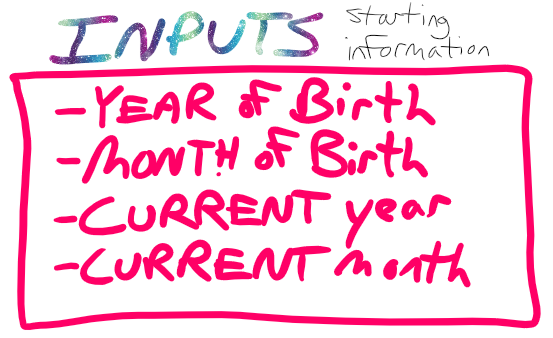 INPUTS starting
information
-YEAR of Birth
-MONTH of Birth
-CURRENT year
-CURRENT month